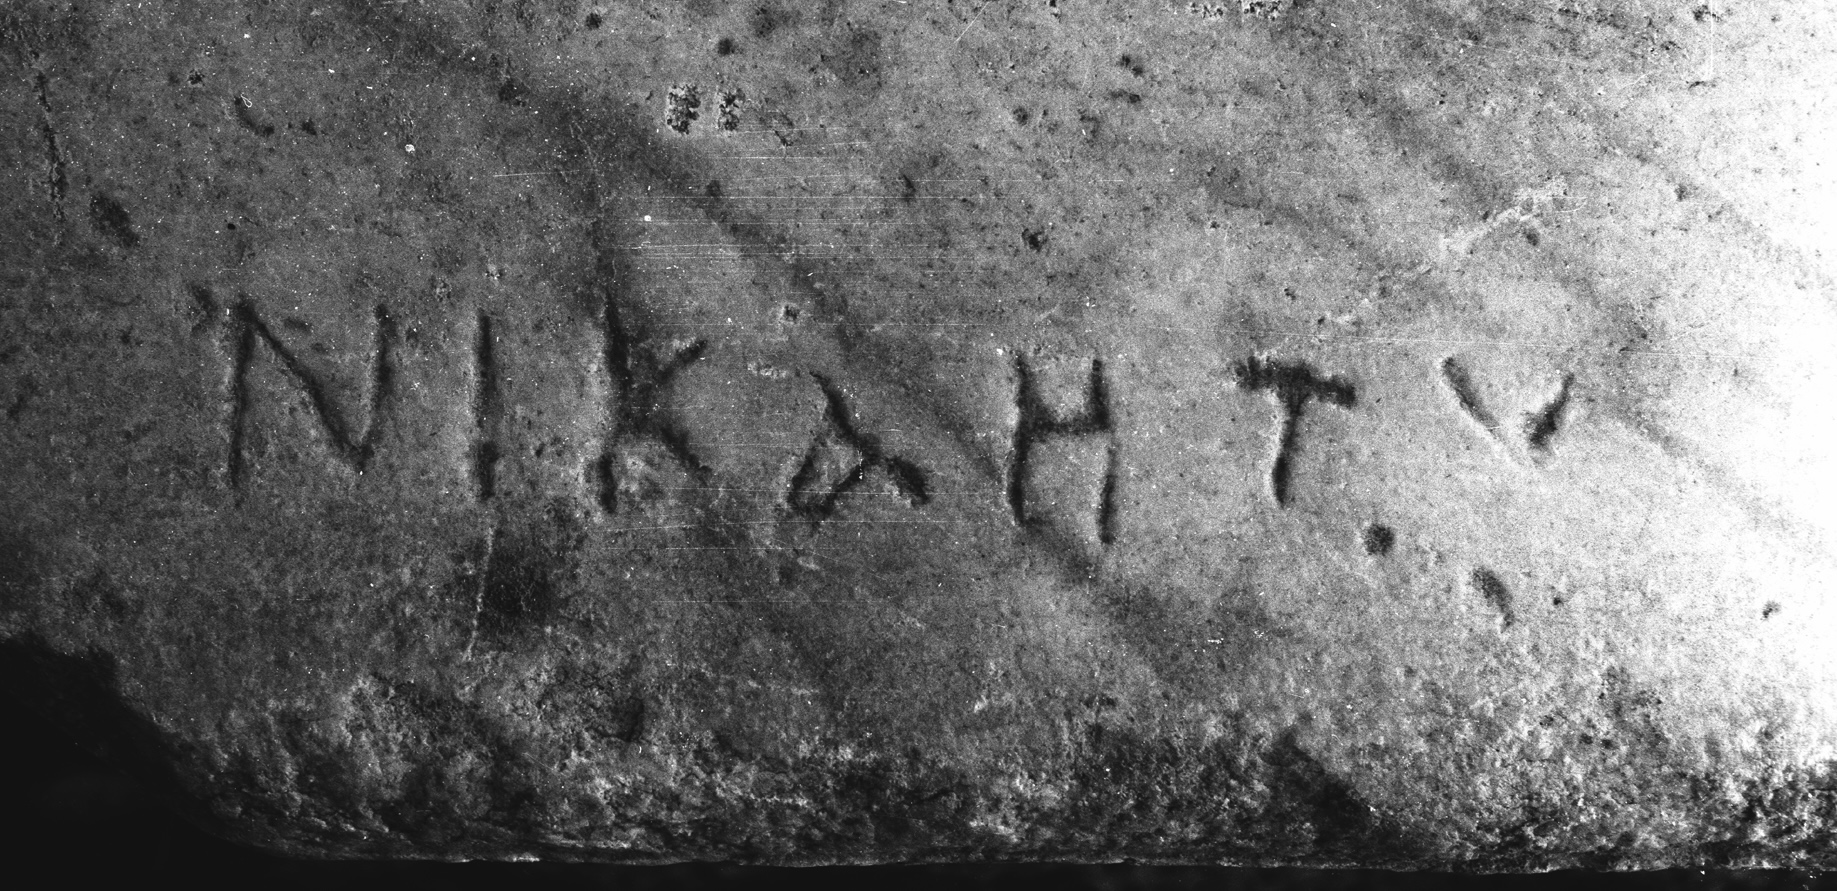 ΝΙΚΑΗΤΥ